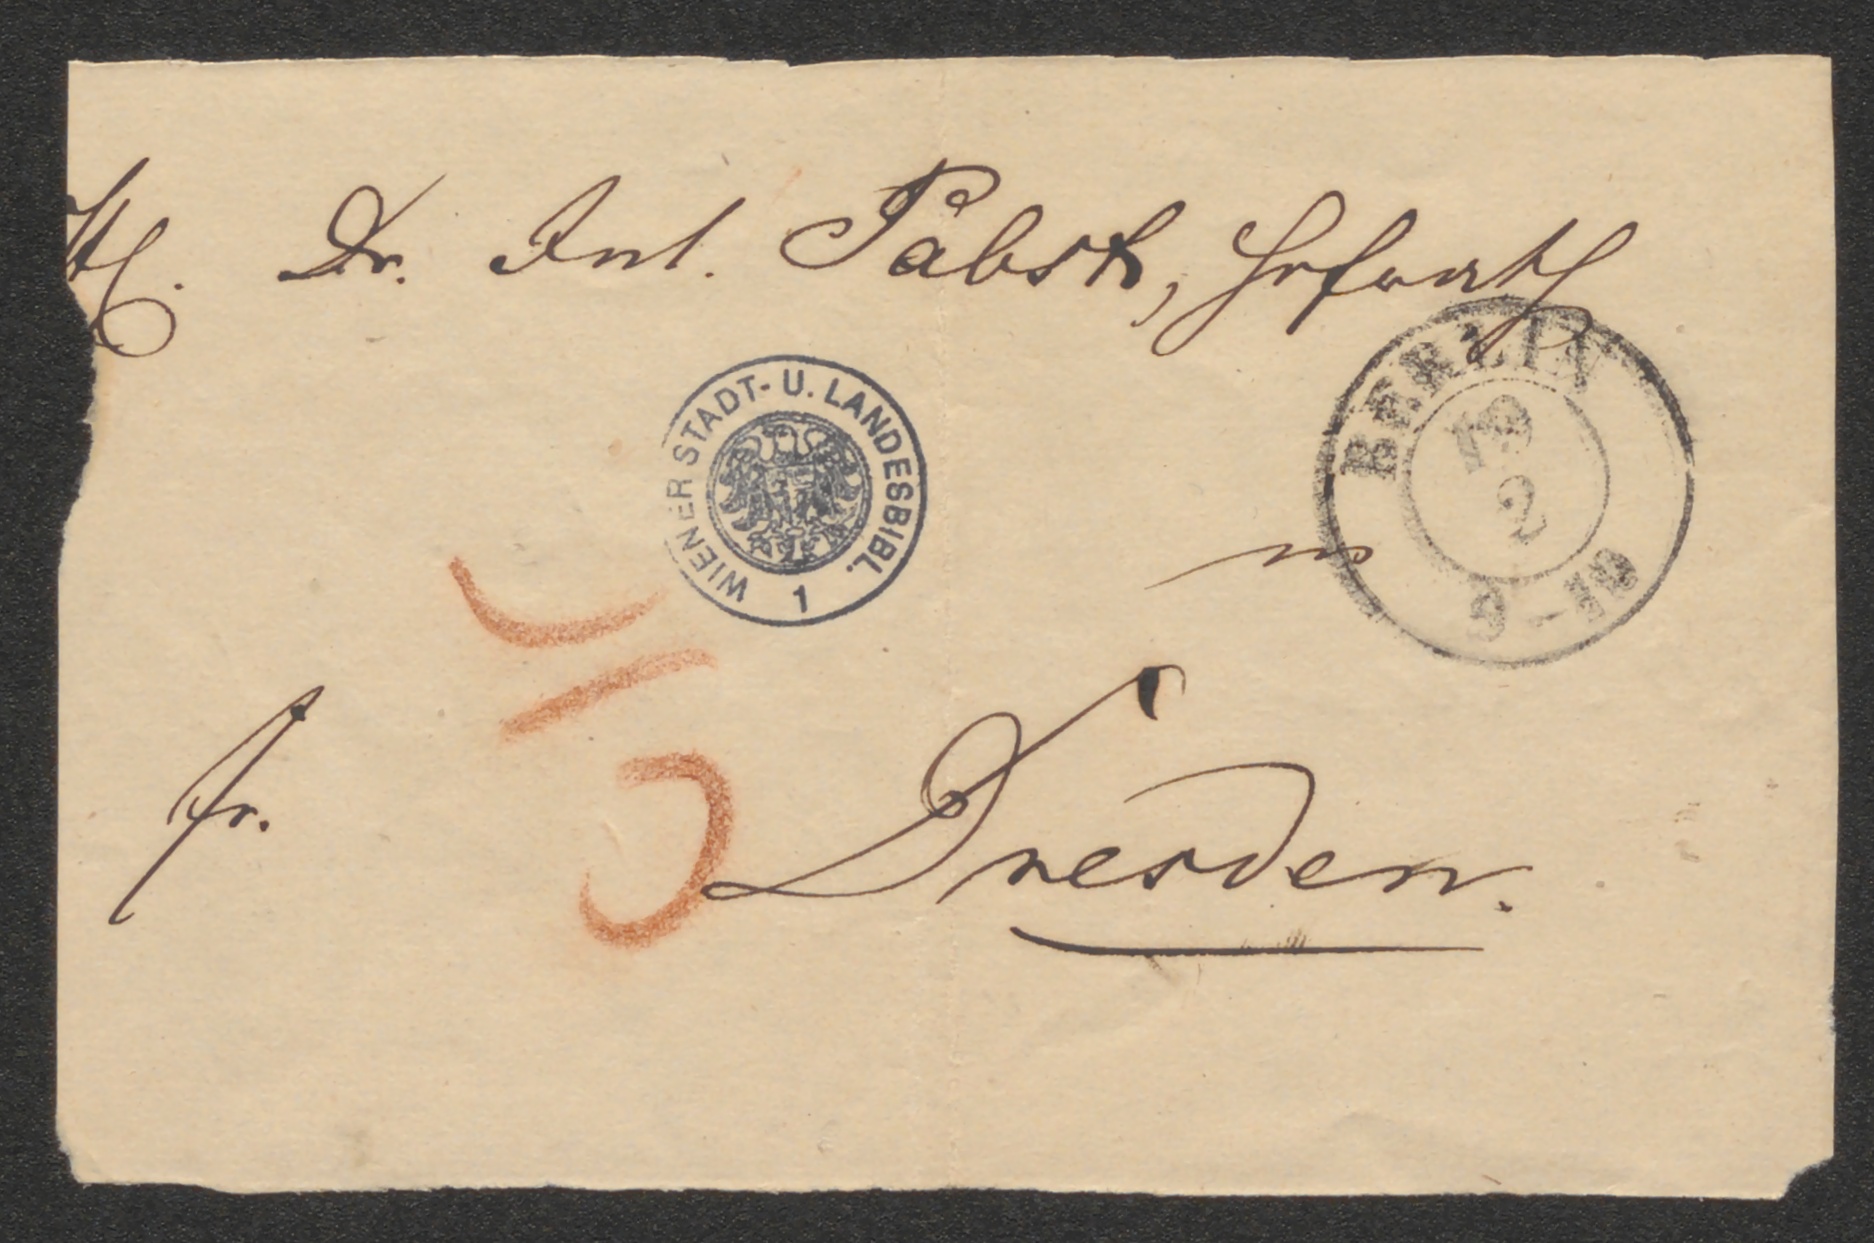 Dr. Jul. Pabst, Hofrath
WIENER STADT- U. LANDESBIBL.
1
BERLIN
2
9-10
in
fr.
Dresden.